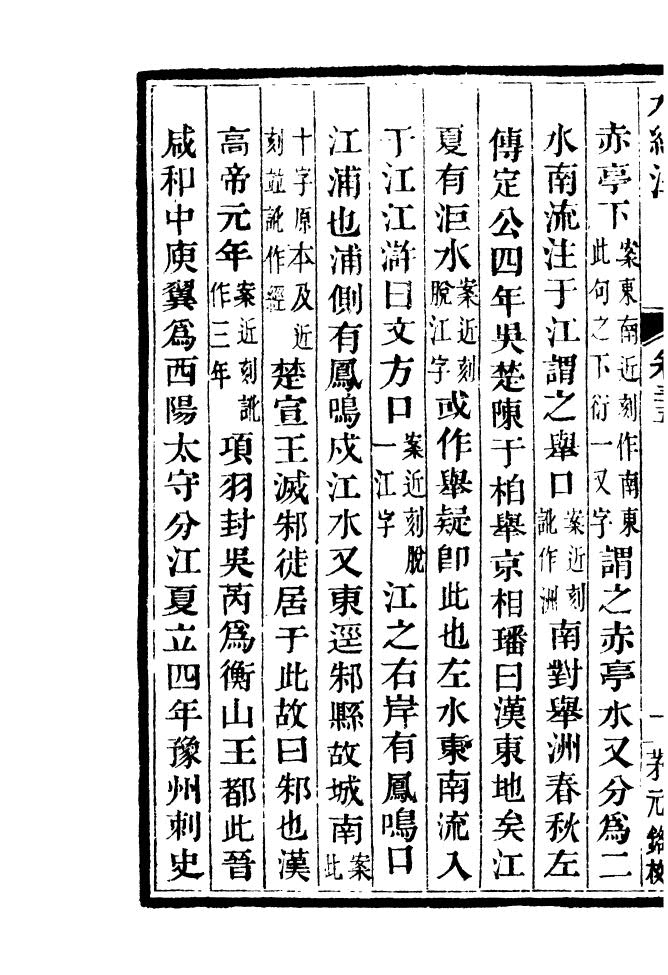 水經注 卷三十五 一 茅元銘校
赤亭下案東南近刻作南東此句之下衍一又字謂之赤亭水又分爲二
水南流注于江謂之舉口案近刻訛作洲南對舉洲春秋左
傳定公四年吳楚陳于柏舉京相璠曰漢東地矣江
夏有洰水案近刻脫江字或作舉疑卽此也左水東南流入
于江江滸曰文方口案近刻脫一江字江之右岸有鳳鳴口
江浦也浦側有鳳鳴戍江水又東逕邾縣故城南案此
十字原本及近刻並訛作經楚宣王滅邾徙居于此故曰邾也漢
高帝元年案近刻訛作三年項羽封吳芮爲衡山王都此晉
咸和中庾翼爲西陽太守分江夏立四年豫州刺史